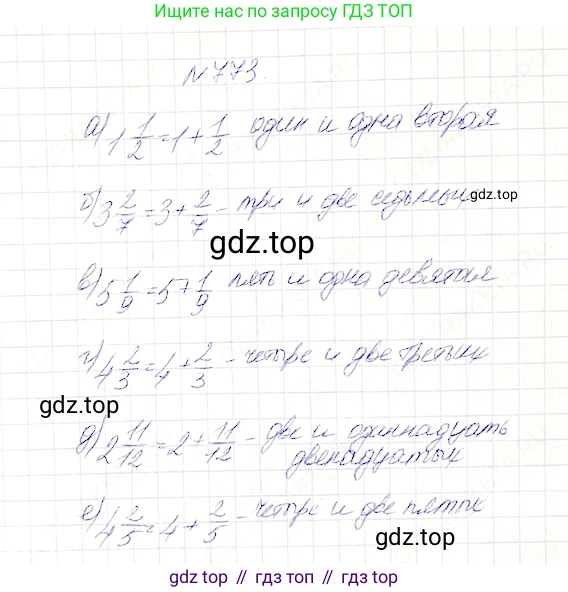 ищите нас в интернете
по запросу ГДЗ ТОП
№773.
а) 1 1/2 = 1 + 1/2 один и одна вторая
б) 3 2/7 = 3 + 2/7 - три и две седьмых
gdz.top
gdz.top
в) 5 1/9 = 5 + 1/9 пять и одна девятая
г) 4 2/3 = 4 + 2/3 - четыре и две третьих
gdz.top
д) 2 11/12 = 2 + 11/12 - две и одиннадцать
двенадцатых
е) 4 2/5 = 4 + 2/5 - четыре и две пятых
gdz.top
gdz.top // гдз топ // gdz.top